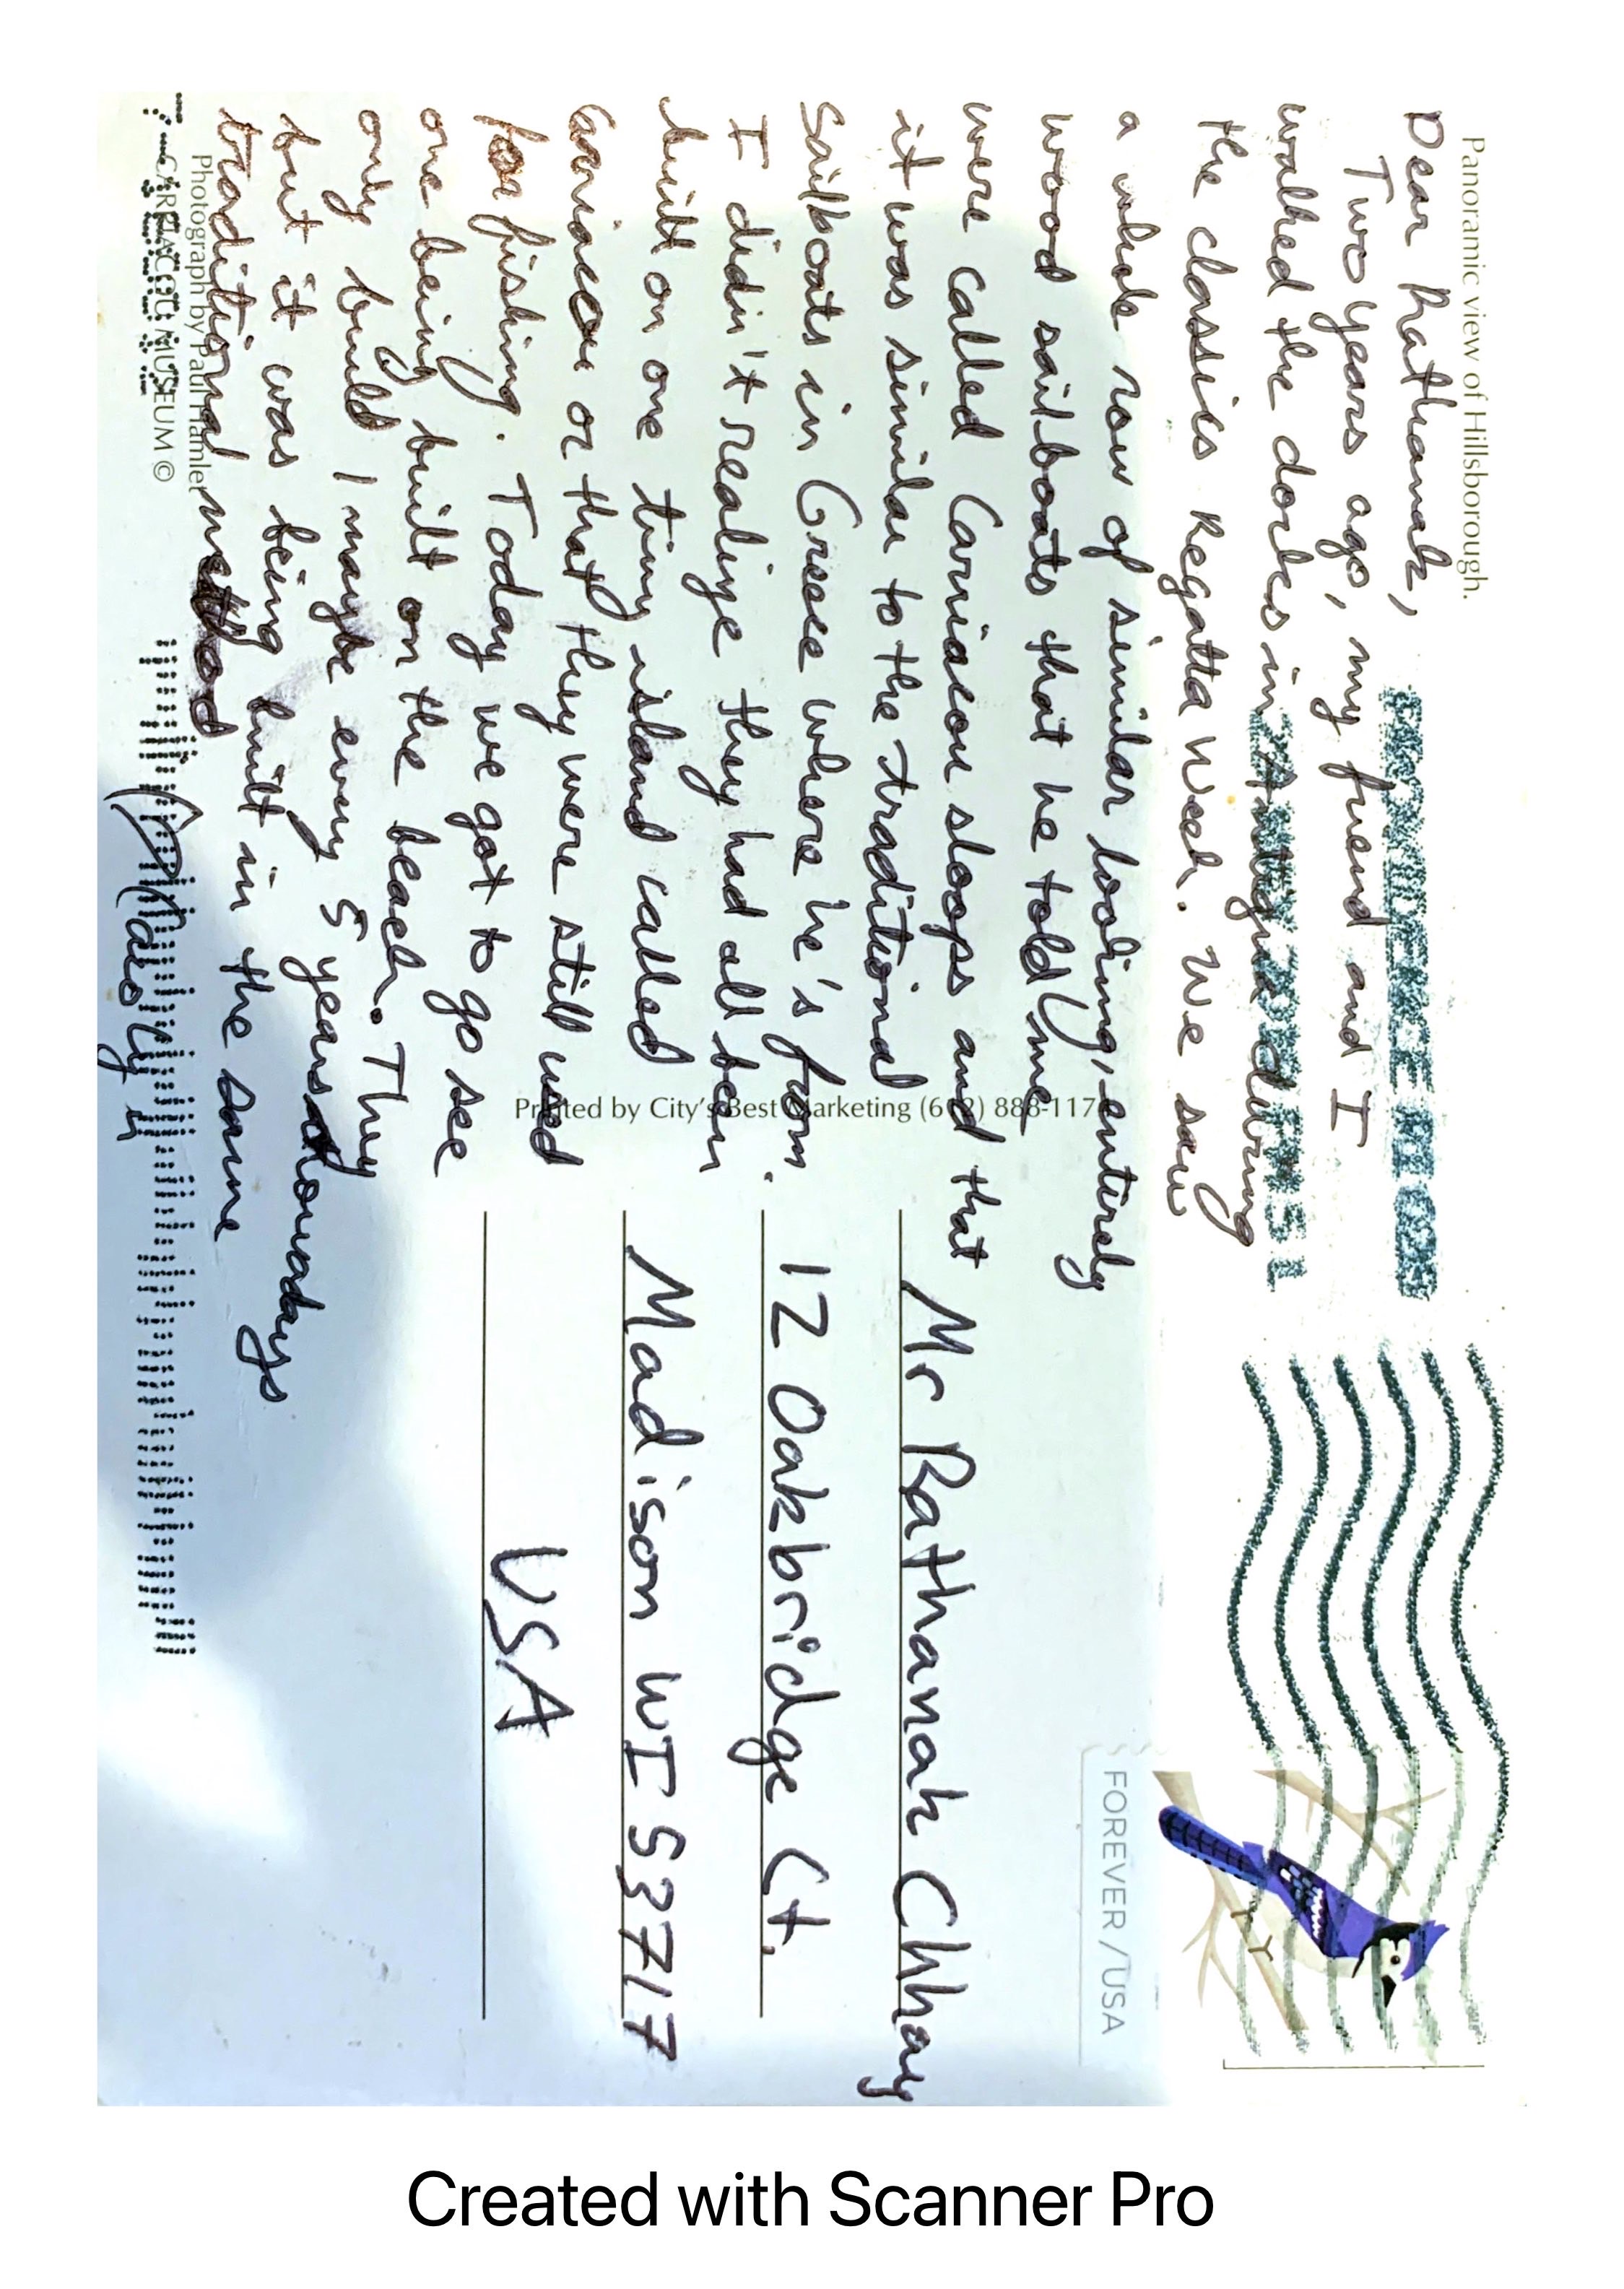 Panoramic view of Hillsborough.
Dear Rathanak,
Two years ago, my friend and I
walked the docks in Antegua during
the classics Regatta week. We saw
a whole row of similar looking, entirely
wood sailboats that he told me
were called Carriacou sloops and that
it was similar to the traditional
Sailboats in Greece where he's from.
I didn't realize they had all been
built on one tiny island called
Carriacou or that they were still used
for fishing. Today we got to go see
one being built on the beach. They
only build 1 maybe every 5 years nowadays
but it was being built in the same
traditional method
Photograph by Paul Hamlet
CARRIACOU MUSEUM ©
Printed by City's Best Marketing (612) 888-117
FOREVER / USA
Mr Rathanak Chhay
12 Oakbridge Ct.
Madison WI 53717
USA
Created with Scanner Pro